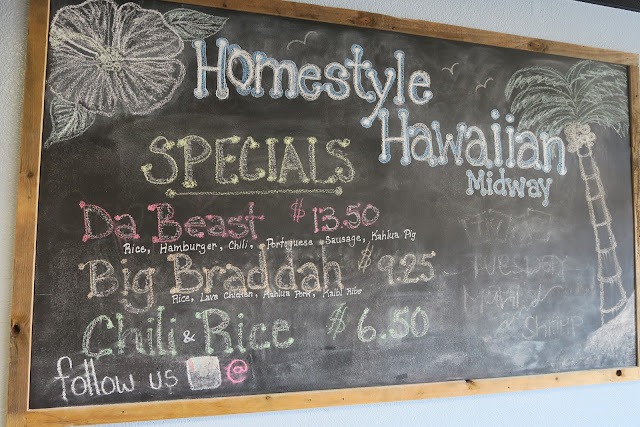 Homestyle
Hawaiian
Midway
SPECIALS
Da Beast $13.50
Rice, Hamburger, Chili, Portuguese Sausage, Kahlua Pig
Big Braddah $9.25
Rice, Lava Chicken, Kahlua Pork, Kalbi Ribs
Chili & Rice $6.50
follow us @
Tuesday
Shrimp